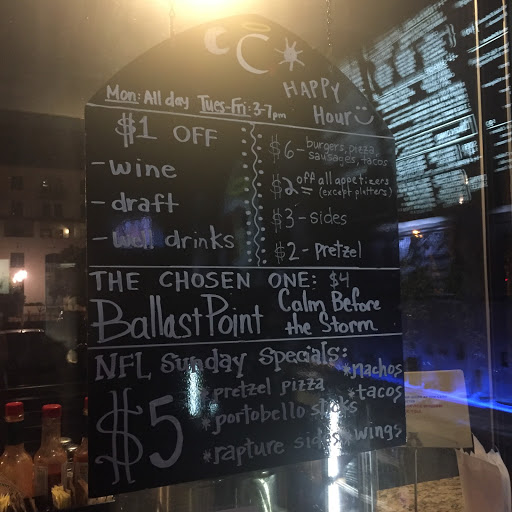 HAPPY
Hour
Mon: All day Tues-Fri: 3-7pm
$1 OFF
-wine
-draft
-well drinks
$6 - burgers, pizza,
sausages, tacos
$2 off all appetizers
(except platters)
$3 - sides
$2 - pretzel
THE CHOSEN ONE: $4
Ballast Point Calm Before
the Storm
NFL Sunday Specials:
$5
*pretzel pizza
*portobello sticks
*rapture sides
*nachos
*tacos
*wings